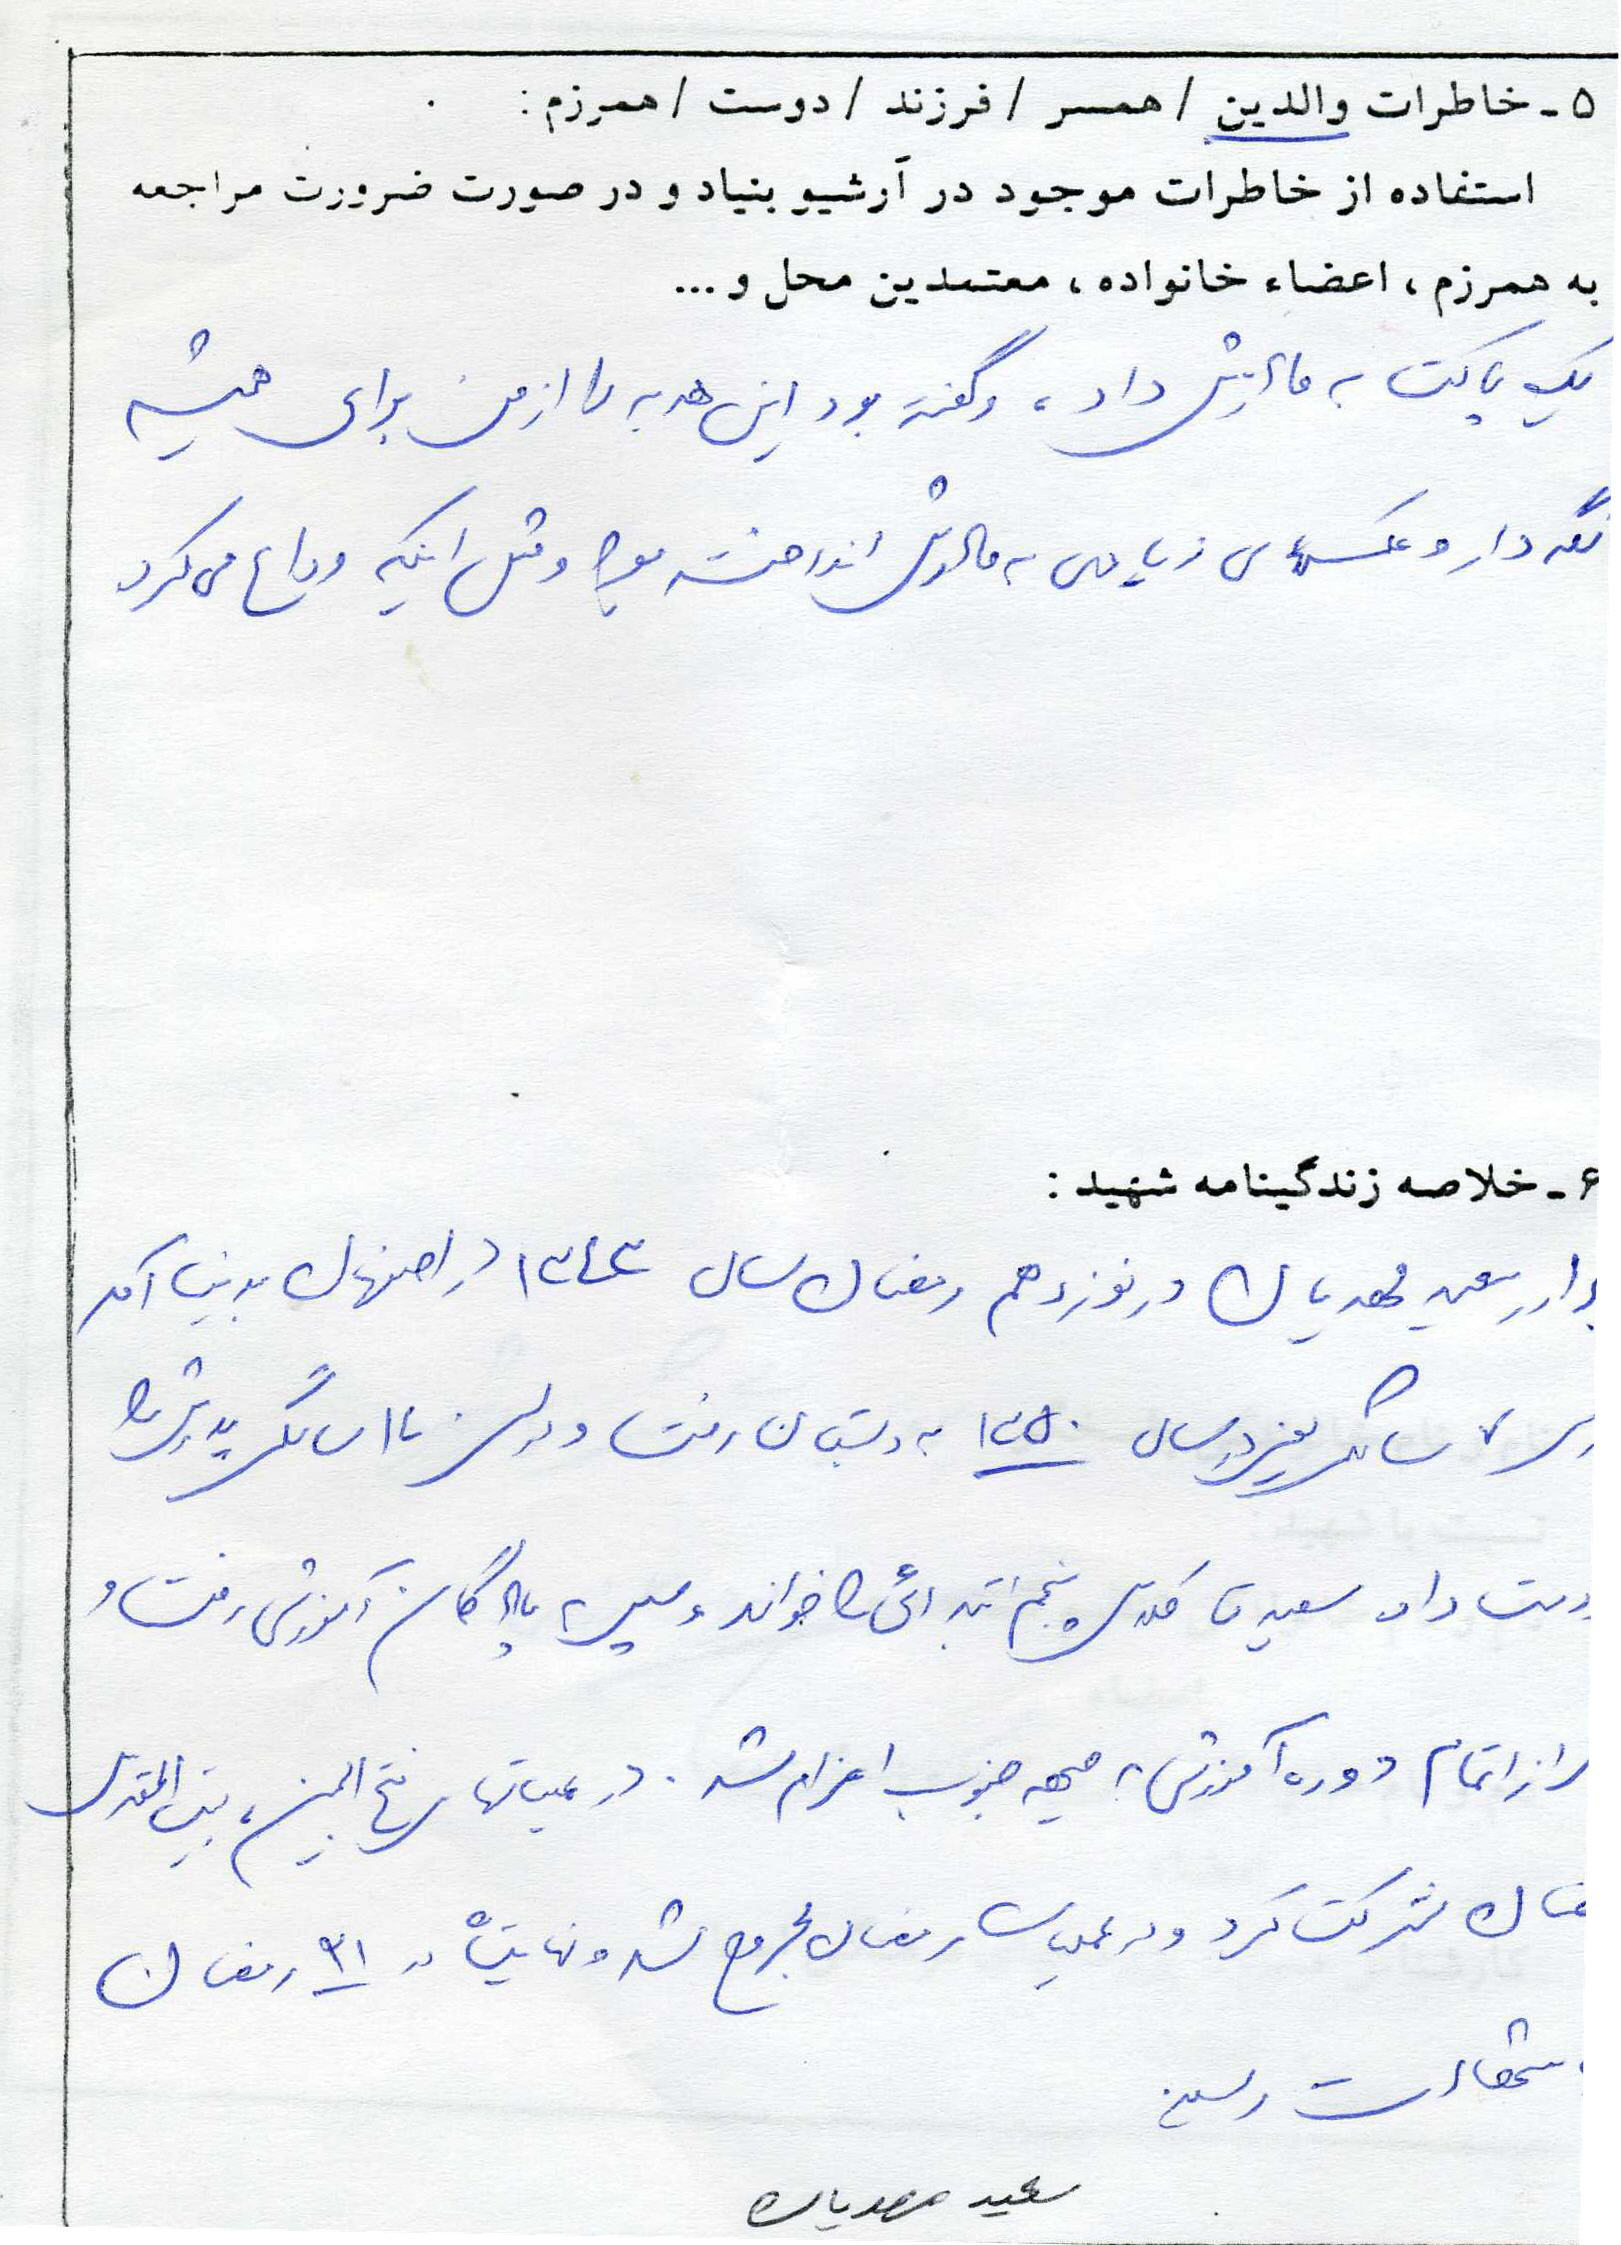 ۵ ـ خاطرات والدین / همسر / فرزند / دوست / همرزم :
استفاده از خاطرات موجود در آرشیو بنیاد و در صورت ضرورت مراجعه
به همرزم ، اعضاء خانواده ، معتمدین محل و ...
یک پاکت به مادرش داد ، و گفته بود این هدیه را از من برای همیشه
نگه دار و عکسهای زیادی به مادرش انداخته بود و مثل اینکه وداع می کرد
۶ ـ خلاصه زندگینامه شهید :
برادر سعید مهدیان در نوزدهم رمضان سال ۱۳۴۳ در اصفهان بدنیا آمد
در ۷ سالگی یعنی در سال ۱۳۵۰ به دبستان رفت و در سن سالگی پدرش را
دست داد. سعید تا کلاس پنجم ابتدائی را خواند و سپس به پادگان آموزشی رفت و
از اتمام دوره آموزشی به جبهه جنوب اعزام شد . در عملیاتهای فتح المبین ، بیت المقدس
شرکت کرد و در عملیات رمضان مجروح شد و نهایتاً در ۲۱ رمضان
شهادت رسید
سعید مهدیان